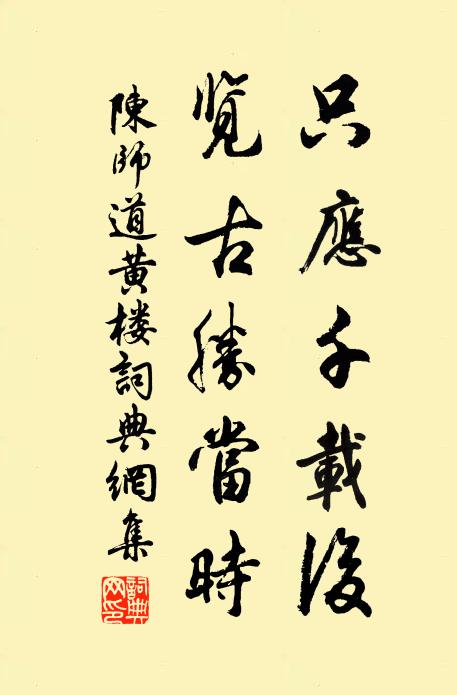 只應千載後
覽古勝當時
陳師道黄楼詞典網集
詞典網印